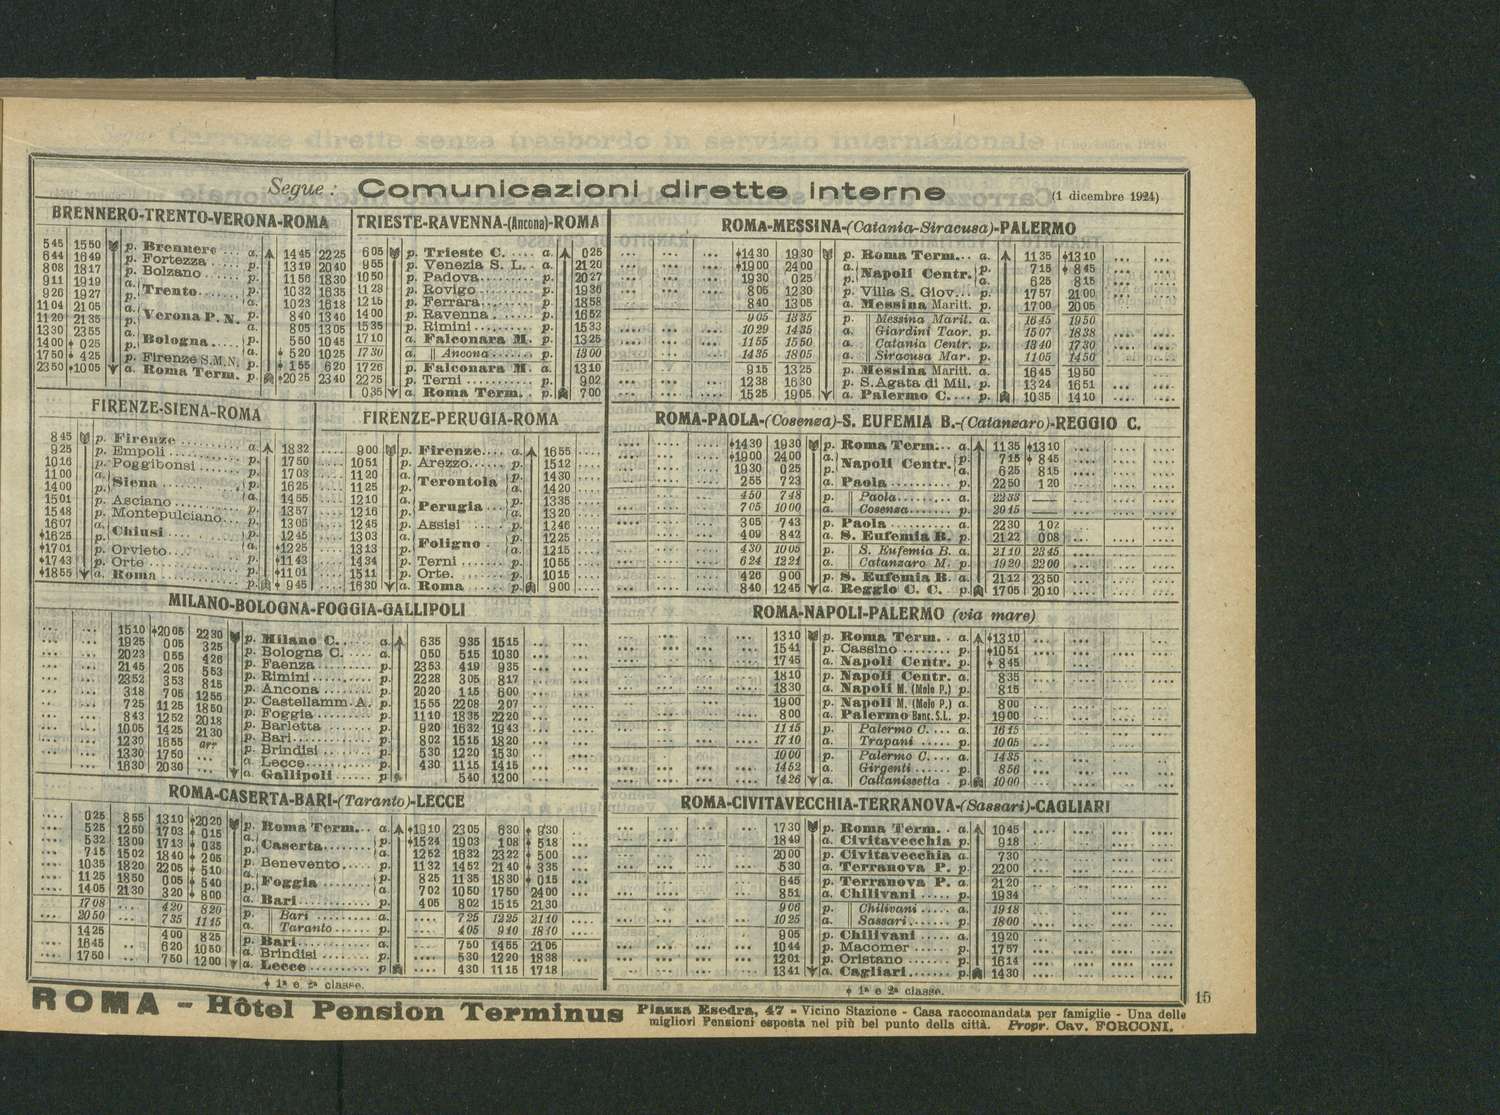 Segue: Comunicazioni dirette interne (1 dicembre 1924)
BRENNERO-TRENTO-VERONA-ROMA
5 45 15 50 p. Brennero a. 14 45 22 25
6 44 16 49 p. Fortezza p. 13 19 20 40
8 08 18 17 p. Bolzano p. 11 56 18 30
9 11 19 19 a. Trento p. 10 32 16 35
9 26 19 27 p. a. 10 23 16 18
11 04 21 05 a. Verona P. N. p. 8 40 13 40
11 20 21 35 p. a. 8 05 13 05
13 30 23 55 a. Bologna p. 5 50 10 45
14 00 0 25 p. a. 5 20 10 25
17 50 4 25 p. Firenze S.M.N. p. 1 55 6 20
23 50 10 05 a. Roma Term. p. 20 25 23 40
TRIESTE-RAVENNA-(Ancona)-ROMA
6 05 p. Trieste C. a. 0 25
9 55 p. Venezia S. L. a. 21 20
10 50 p. Padova p. 20 27
11 28 p. Rovigo p. 19 36
12 15 p. Ferrara p. 18 58
14 00 p. Ravenna p. 16 52
15 35 p. Rimini p. 15 33
17 10 a. Falconara M. p. 13 25
17 30 a. Ancona p. 13 00
17 26 p. Falconara M. a. 13 10
22 25 p. Terni p. 9 02
0 35 a. Roma Term. p. 7 00
ROMA-MESSINA-(Catania-Siracusa)-PALERMO
14 30 19 30 p. Roma Term. a. 11 35 13 10
19 00 24 00 a. Napoli Centr. p. 7 15 8 45
19 30 0 25 p. a. 6 25 8 15
8 05 12 30 p. Villa S. Giov. p. 17 57 21 00
8 40 13 05 a. Messina Maritt. p. 17 00 20 05
9 05 13 35 p. Messina Marit. a. 16 45 19 50
10 29 14 35 a. Giardini Taor. p. 15 07 18 38
11 55 15 50 a. Catania Centr. p. 13 40 17 30
14 35 18 05 a. Siracusa Mar. p. 11 05 14 50
9 15 13 25 p. Messina Maritt. a. 16 45 19 50
12 38 16 30 p. S.Agata di Mil. p. 13 24 16 51
15 25 19 05 a. Palermo C. p. 10 35 14 10
FIRENZE-SIENA-ROMA
8 45 p. Firenze a. 18 32
9 25 p. Empoli p. 17 50
10 16 p. Poggibonsi p. 17 03
11 00 a. Siena p. 16 25
14 00 p. a. 14 55
15 01 p. Asciano p. 13 57
15 48 p. Montepulciano p. 13 05
16 07 a. Chiusi p. 12 45
16 25 p. a. 12 25
17 01 p. Orvieto p. 11 43
17 43 p. Orte p. 11 01
18 55 a. Roma p. 9 45
FIRENZE-PERUGIA-ROMA
9 00 p. Firenze a. 16 55
10 51 p. Arezzo p. 15 12
11 20 a. Terontola p. 14 30
11 25 p. a. 14 20
12 10 a. Perugia p. 13 35
12 16 p. a. 13 20
12 45 p. Assisi p. 12 46
13 03 a. Foligno p. 12 25
13 13 p. a. 12 15
14 34 p. Terni p. 10 55
15 11 p. Orte p. 10 15
16 30 a. Roma p. 9 00
ROMA-PAOLA-(Cosenza)-S. EUFEMIA B.-(Catanzaro)-REGGIO C.
14 30 19 30 p. Roma Term. a. 11 35 13 10
19 00 24 00 a. Napoli Centr. p. 7 15 8 45
19 30 0 25 p. a. 6 25 8 15
2 55 7 23 a. Paola p. 22 50 1 20
4 50 7 48 p. Paola a. 22 33
7 05 10 00 a. Cosenza p. 20 15
3 05 7 43 p. Paola a. 22 30 1 02
4 09 8 42 a. S. Eufemia B. p. 21 22 0 08
4 30 10 05 p. S. Eufemia B. a. 21 10 23 45
6 24 12 21 a. Catanzaro M. p. 19 20 22 00
4 26 9 00 p. S. Eufemia B. a. 21 12 23 50
8 40 12 45 a. Reggio C. C. p. 17 05 20 10
MILANO-BOLOGNA-FOGGIA-GALLIPOLI
15 10 20 05 22 30 p. Milano C. a. 6 35 9 35 15 15
19 25 0 05 3 25 p. Bologna C. a. 0 50 5 15 10 30
20 23 0 55 4 26 p. Faenza p. 23 53 4 19 9 35
21 45 2 05 5 53 p. Rimini p. 22 28 3 05 8 17
23 52 3 53 8 15 p. Ancona p. 20 20 1 15 6 00
3 18 7 05 12 55 p. Castellamm. A. p. 15 55 22 08 2 07
7 25 11 25 18 50 p. Foggia p. 11 10 18 35 22 20
8 43 12 52 20 18 p. Barletta p. 9 20 16 32 19 43
10 05 14 25 21 30 p. Bari p. 8 02 15 15 18 20
12 30 16 55 arr p. Brindisi p. 5 30 12 20 15 30
13 30 17 50 a. Lecce p. 4 30 11 15 14 15
16 30 20 30 a. Gallipoli p. 5 40 12 00
ROMA-NAPOLI-PALERMO (via mare)
13 10 p. Roma Term. a. 13 10
15 41 p. Cassino p. 10 51
17 45 a. Napoli Centr. p. 8 45
18 10 p. Napoli Centr. a. 8 35
18 30 a. Napoli M. (Molo P.) p. 8 15
19 00 p. Napoli M. (Molo P.) a. 8 00
8 00 a. Palermo Banc. S.L. p. 19 00
11 15 p. Palermo C. a. 16 15
17 10 a. Trapani p. 10 05
10 00 p. Palermo C. a. 14 35
14 52 a. Girgenti p. 8 56
14 26 a. Caltanissetta p. 10 00
ROMA-CASERTA-BARI-(Taranto)-LECCE
0 25 8 55 13 10 20 20 p. Roma Term. a. 19 10 23 05 6 30 9 30
5 25 12 50 17 03 0 15 a. Caserta p. 15 24 19 03 1 08 5 18
5 32 13 09 17 13 0 35 p. a. 12 52 16 32 23 22 5 00
7 15 15 02 18 40 2 05 p. Benevento p. 11 32 14 52 21 40 3 35
10 35 18 20 22 05 5 10 a. Foggia p. 8 25 11 35 18 30 0 15
11 25 18 50 0 05 5 40 p. a. 7 02 10 50 17 50 24 00
14 05 21 30 3 20 8 00 a. Bari p. 4 05 8 02 15 15 21 30
17 08 4 20 8 20 p. Bari a. 7 25 12 25 21 10
20 50 7 35 11 15 a. Taranto p. 4 05 9 10 18 10
14 25 4 00 8 25 p. Bari a. 7 50 14 55 21 05
16 45 6 20 10 50 a. Brindisi p. 5 30 12 20 18 38
17 50 7 50 12 00 a. Lecce p. 4 30 11 15 17 18
1ª e 2ª classe.
ROMA-CIVITAVECCHIA-TERRANOVA-(Sassari)-CAGLIARI
17 30 p. Roma Term. a. 10 45
18 49 a. Civitavecchia p. 9 18
20 00 p. Civitavecchia a. 7 30
5 30 a. Terranova P. p. 22 00
6 45 p. Terranova P. a. 21 20
8 51 a. Chilivani p. 19 34
9 06 p. Chilivani a. 19 18
10 25 a. Sassari p. 18 00
9 05 p. Chilivani a. 19 20
10 44 p. Macomer p. 17 57
12 01 p. Oristano p. 16 14
13 41 a. Cagliari p. 14 30
1ª e 2ª classe.
15
ROMA - Hôtel Pension Terminus Piazza Esedra, 47 - Vicino Stazione - Casa raccomandata per famiglie - Una delle
migliori Pensioni esposta nel più bel punto della città. Propr. Cav. FORCONI.